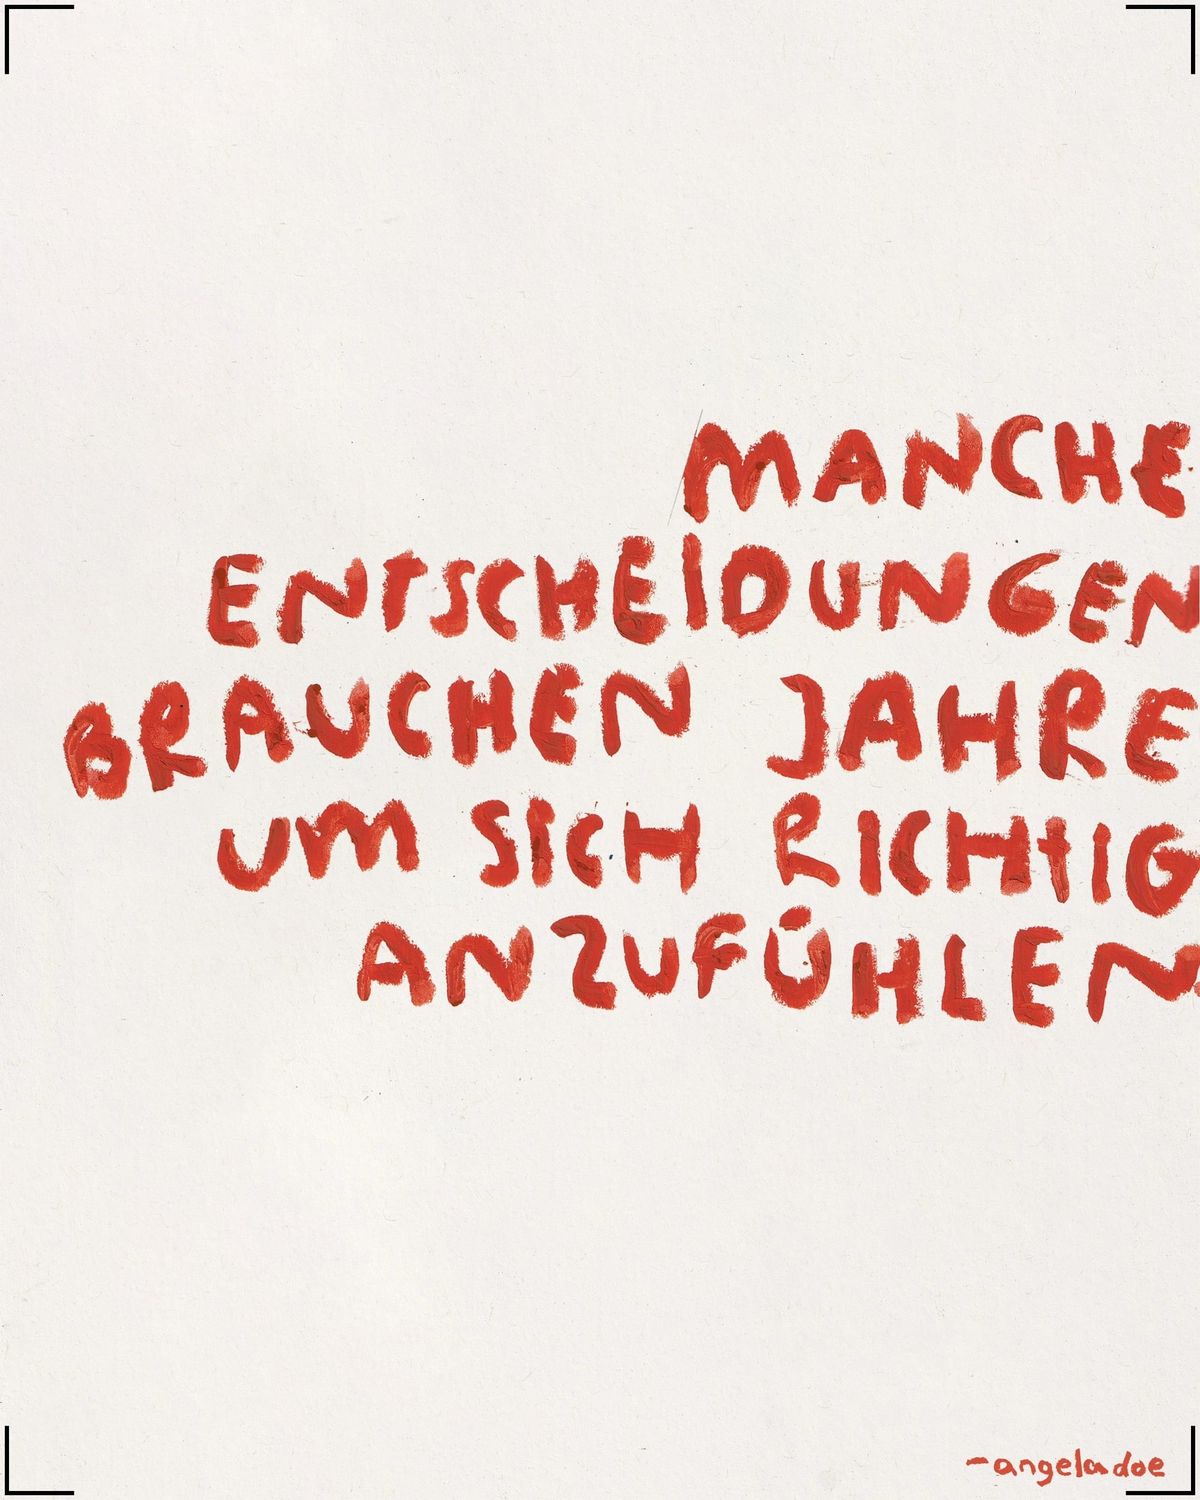 MANCHE
ENTSCHEIDUNGEN
BRAUCHEN JAHRE
UM SICH RICHTIG
ANZUFÜHLEN
-angeladoe